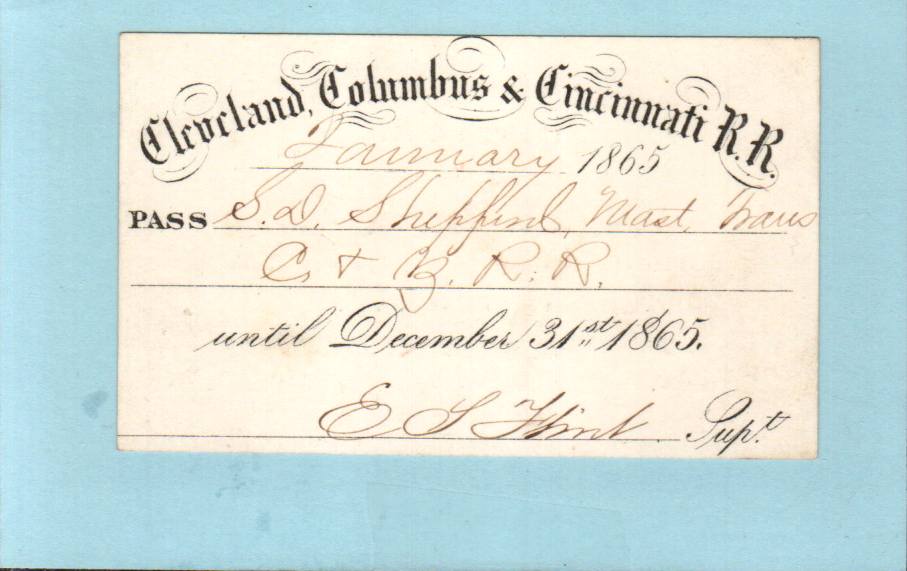 Cleveland, Columbus & Cincinnati R.R.
January 1865
PASS S. D. Sheppard, Mast, Trans
C. & Z. R. R.
until December 31st 1865.
E S Flint Supt.